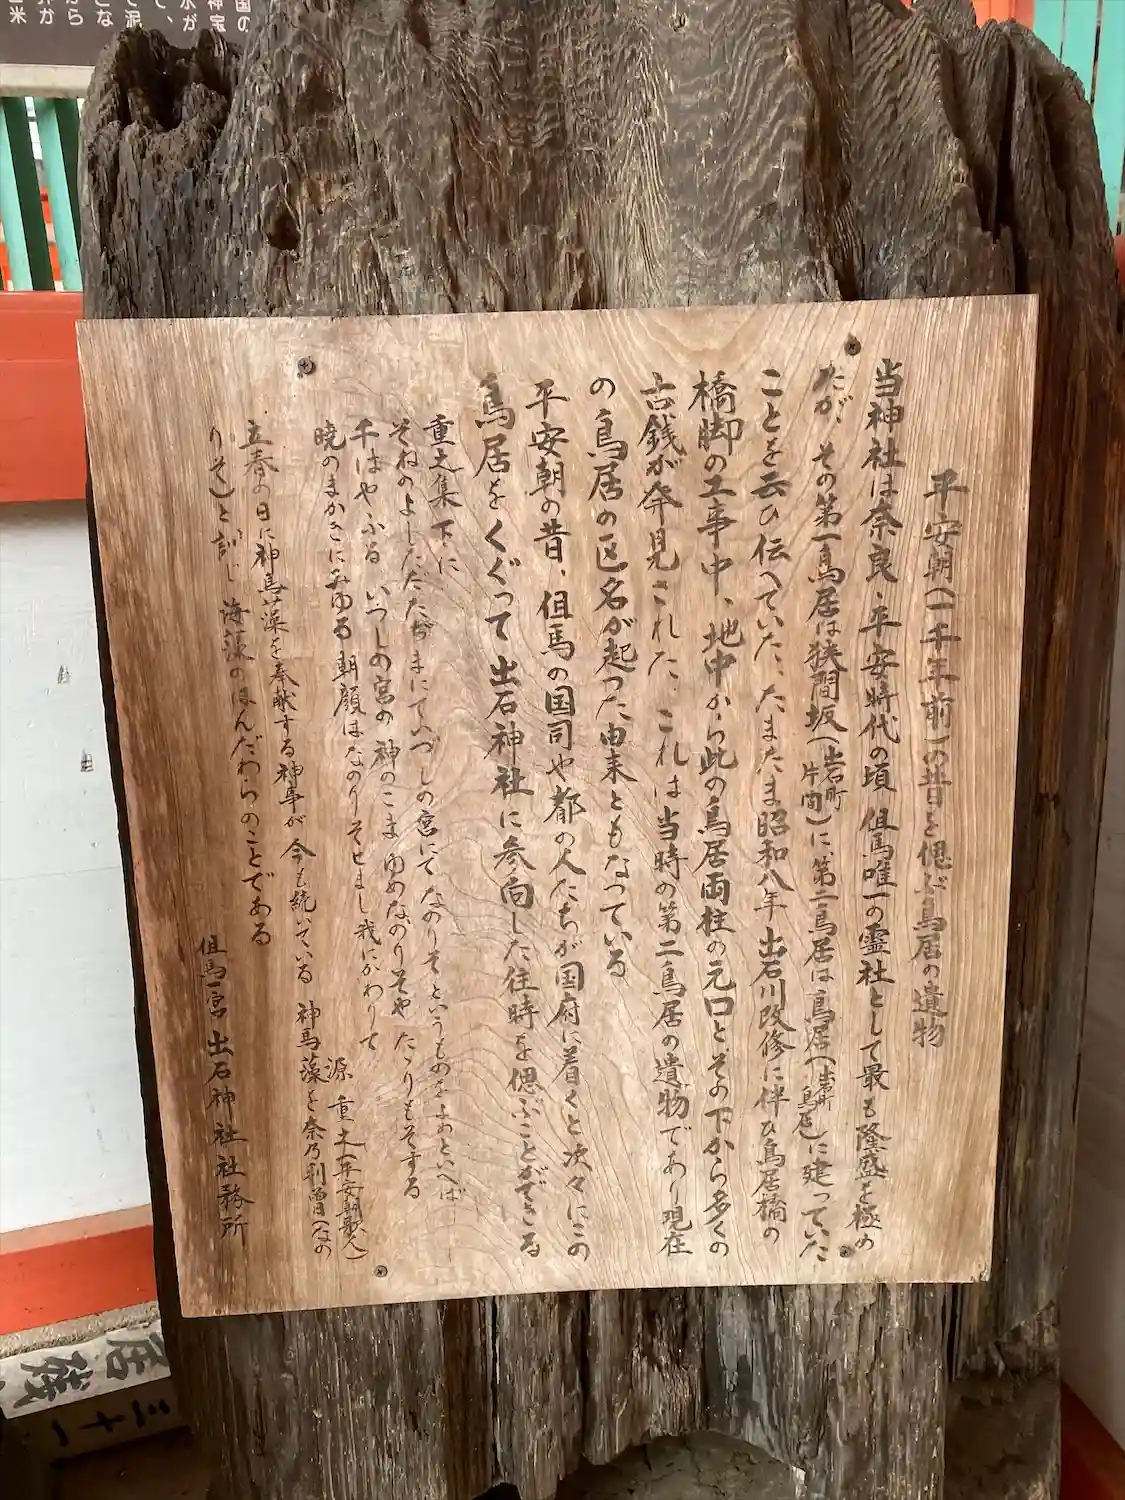 平安朝(一千年前)の昔を偲ぶ鳥居の遺物
当神社は奈良、平安時代の頃 但馬唯一の霊社として最も隆盛を極め
たが、その第一鳥居は狭間坂(出石町片間)に、第二鳥居は鳥居(出石町鳥居)に建っていた
ことを云ひ伝へていた、たまたま昭和八年 出石川改修に伴ひ鳥居橋の
橋脚の工事中、地中から此の鳥居両柱の元口と、その下から多くの
古銭が発見された、これは当時の第二鳥居の遺物であり現在
の鳥居の区名が起った由来ともなっている
平安朝の昔、但馬の国司や都の人たちが国府に着くと次々にこの
鳥居をくぐって出石神社に参向した往時を偲ぶことができる
重之集 下に
そねのよしただたぢまにていづしの宮にてなのりそというものをよめといへば
千はやふる いつしの宮の 神のこま ゆめなのりそや たゝりもそする
暁のまがきにみゆる朝顔はなのりそせまし我にかわりて
源 重之(平安朝歌人)
立春の日に神馬藻を奉献する神事が 今も続いている 神馬藻を奈乃利曽(なの
りそ)と訓じ 海藻のほんだわらのことである
但馬一宮 出石神社社務所